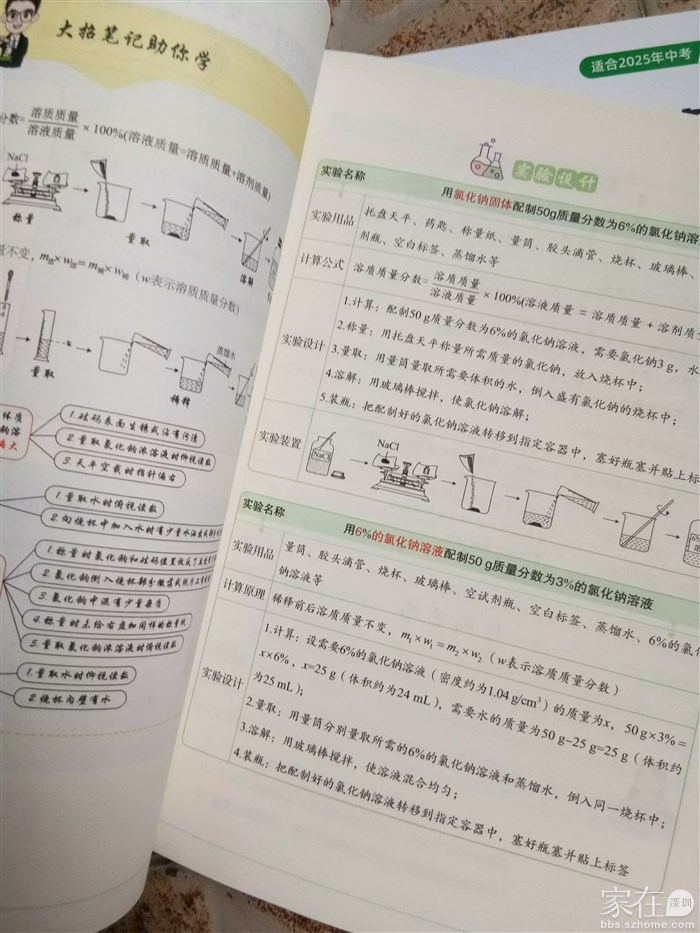 大招笔记助你学
分数=溶质质量/溶液质量×100%(溶液质量=溶质质量+溶剂质量)
NaCl
称量
量取
溶解
量不变，m浓×w浓=m稀×w稀（w表示溶质质量分数)
量取
蒸馏水
稀释
体质
钠溶
偏大
1.砝码表面生锈或沾有污渍
2.量取氯化钠浓溶液时仰视读数
3.天平空载时指针偏右
1.量取水时俯视读数
2.向烧杯中加入水时有少量水洒出
1.称量时氯化钠和砝码位置放反了
2.氯化钠倒入烧杯部分撒落
3.氯化钠中混有少量杂质
4.称量时未给右盘加同样的称量纸
5.量取氯化钠浓溶液时俯视读数
1.量取水时仰视读数
2.烧杯内壁有水
适合2025年中考
实验设计
实验名称
用氯化钠固体配制50g质量分数为6%的氯化钠溶
实验用品
托盘天平、药匙、称量纸、量筒、胶头滴管、烧杯、玻璃棒、
剂瓶、空白标签、蒸馏水等
计算公式
溶质质量分数=溶质质量/溶液质量×100%(溶液质量 = 溶质质量 + 溶剂质
实验设计
1.计算：配制50 g质量分数为6%的氯化钠溶液，需要氯化钠3 g，水
2.称量：用托盘天平称量所需质量的氯化钠，放入烧杯中；
3.量取：用量筒量取所需要体积的水，倒入盛有氯化钠的烧杯中；
4.溶解：用玻璃棒搅拌，使氯化钠溶解；
5.装瓶：把配制好的氯化钠溶液转移到指定容器中，塞好瓶塞并贴上标
实验装置
NaCl
NaCl
6%
实验名称
用6%的氯化钠溶液配制50 g质量分数为3%的氯化钠溶液
实验用品
量筒、胶头滴管、烧杯、玻璃棒、空试剂瓶、空白标签、蒸馏水、6%的氯化
钠溶液等
计算原理
稀释前后溶质质量不变，m₁×w₁=m₂×w₂（w表示溶质质量分数）
实验设计
1.计算：设需要6%的氯化钠溶液（密度约为1.04 g/cm³）的质量为x，50 g×3%=
x×6%，x=25 g（体积约为24 mL），需要水的质量为50 g-25 g=25 g（体积约
为25 mL）；
2.量取：用量筒分别量取所需的6%的氯化钠溶液和蒸馏水，倒入同一烧杯中；
3.溶解：用玻璃棒搅拌，使溶液混合均匀；
4.装瓶：把配制好的氯化钠溶液转移到指定容器中，塞好瓶塞并贴上标签
家在深圳
bbs.szhome.com